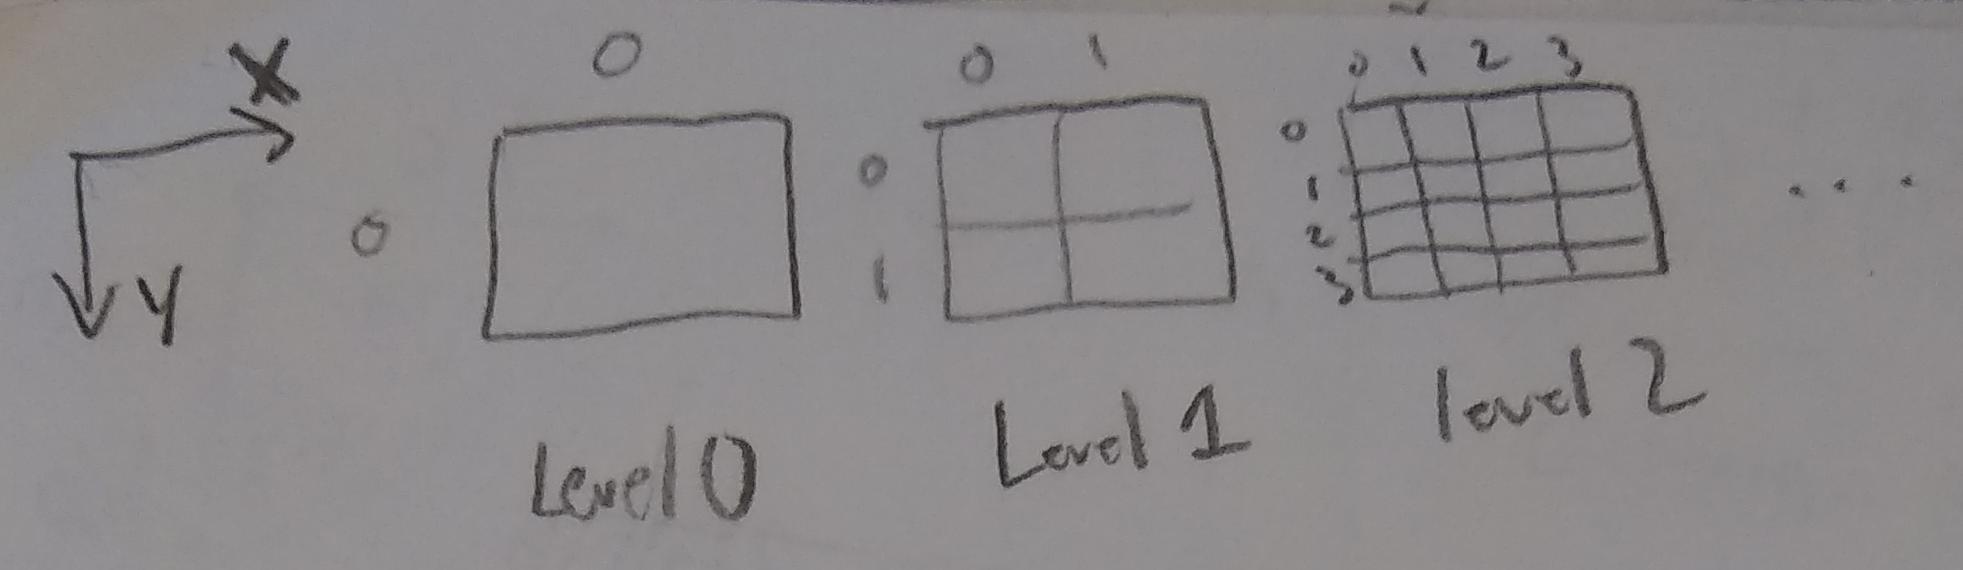 X
Y
0
0
Level 0
0 1
0
1
Level 1
0 1 2 3
0
1
2
3
level 2
...